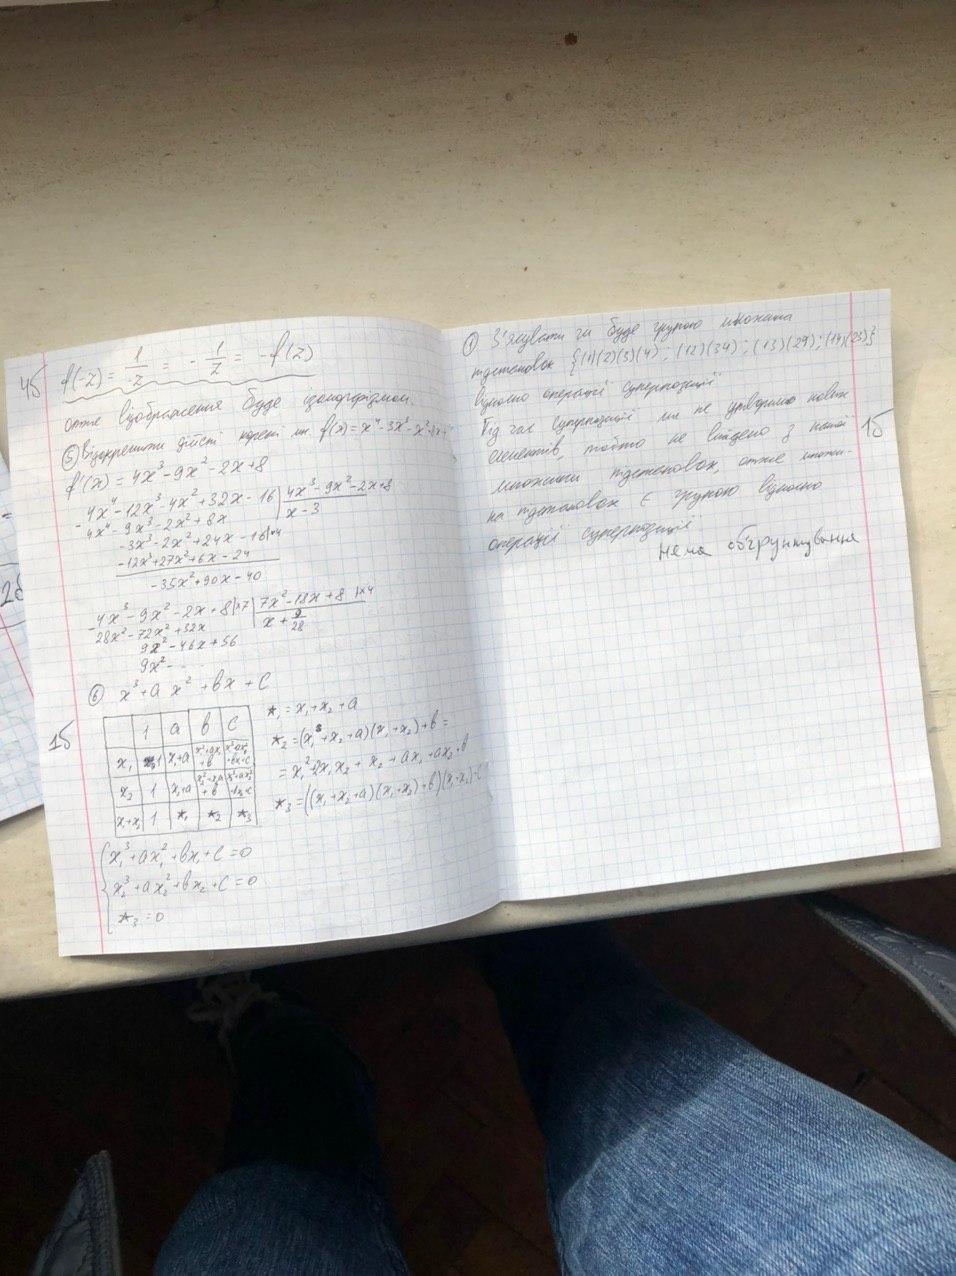 4б
f(-z) = 1/-z = - 1/z = -f(z)
отже відображення буде ізоморфізмом.
⑤ Відокремити дійсні корені мн. f(x) = x⁴-3x³-x²
f'(x) = 4x³-9x²-2x+8
4x⁴-12x³-4x²+32x-16 | 4x³-9x²-2x+8
4x⁴-9x³-2x²+8x | x-3
-3x³-2x²+24x-16 |·4
-12x³+27x²+6x-24
-35x²+90x-40
4x³-9x²-2x+8 |×7 | 7x²-18x+8 |×4
28x²-72x²+32x | x + 9/28
9x²-46x+56
9x²-
⑥ x³+ax²+bx+c
1б
1 a b c
x₁ 1 x₁+a x₁²+ax₁+b x₁³+ax₁²+bx₁+c
x₂ 1 x₂+a x₂²+x₂a+b
x₁+x₂ 1 *₁ *₂ *₃
*₁ = x₁+x₂+a
*₂ = (x₁+x₂+a)(x₁+x₂)+b =
= x₁²+2x₁x₂+x₂+ax₁+ax₂+b
*₃ = ((x₁+x₂+a)(x₁+x₂)+b)(x₁+x₂)+c
x₁³+ax₁²+bx₁+c=0
x₂³+ax₂²+bx₂+c=0
*₃=0
① З'ясувати чи буде групою множина
підстановок {(1)(2)(3)(4); (12)(34); (13)(24); (14)(23)}
відносно операції суперпозиції
Під час суперпозиції ми не утворимо нових
елементів, тобто не вийдемо з нашої
множини підстановок, отже множи-
на підстановок є групою відносно
операції суперпозиції
1б
нема обґрунтування